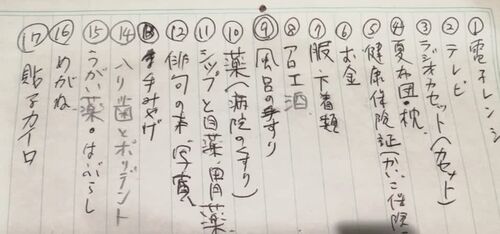 ①電子レンジ
②テレビ
③ラジオカセット(カセット)
④夏布団・枕
⑤健康保険証(かいご保険
⑥お金
⑦服・下着類
⑧アロエ酒
⑨風呂の手すり
⑩薬(病院のくすり)
⑪シップと目薬、胃薬
⑫俳句の本 写真
⑬手みやげ
⑭入り歯とポリデント
⑮うがい薬・はぶらし
⑯めがね
⑰貼るカイロ